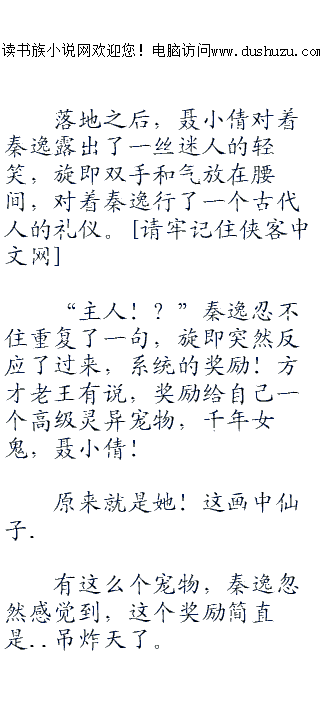 读书族小说网欢迎您！电脑访问www.dushuzu.com
落地之后，聂小倩对着
秦逸露出了一丝迷人的轻
笑，旋即双手和气放在腰
间，对着秦逸行了一个古代
人的礼仪。[请牢记住侠客中
文网]
“主人！？”秦逸忍不
住重复了一句，旋即突然反
应了过来，系统的奖励！方
才老王有说，奖励给自己一
个高级灵异宠物，千年女
鬼，聂小倩！
原来就是她！这画中仙
子.
有这么个宠物，秦逸忽
然感觉到，这个奖励简直
是..吊炸天了。